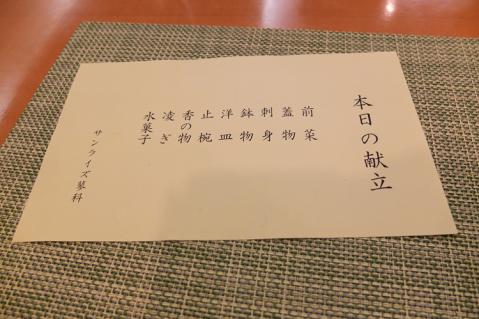 本日の献立
前菜
蓋物
刺身
鉢物
洋皿
止椀
香の物
凌ぎ
水菓子
サンライズ蓼科